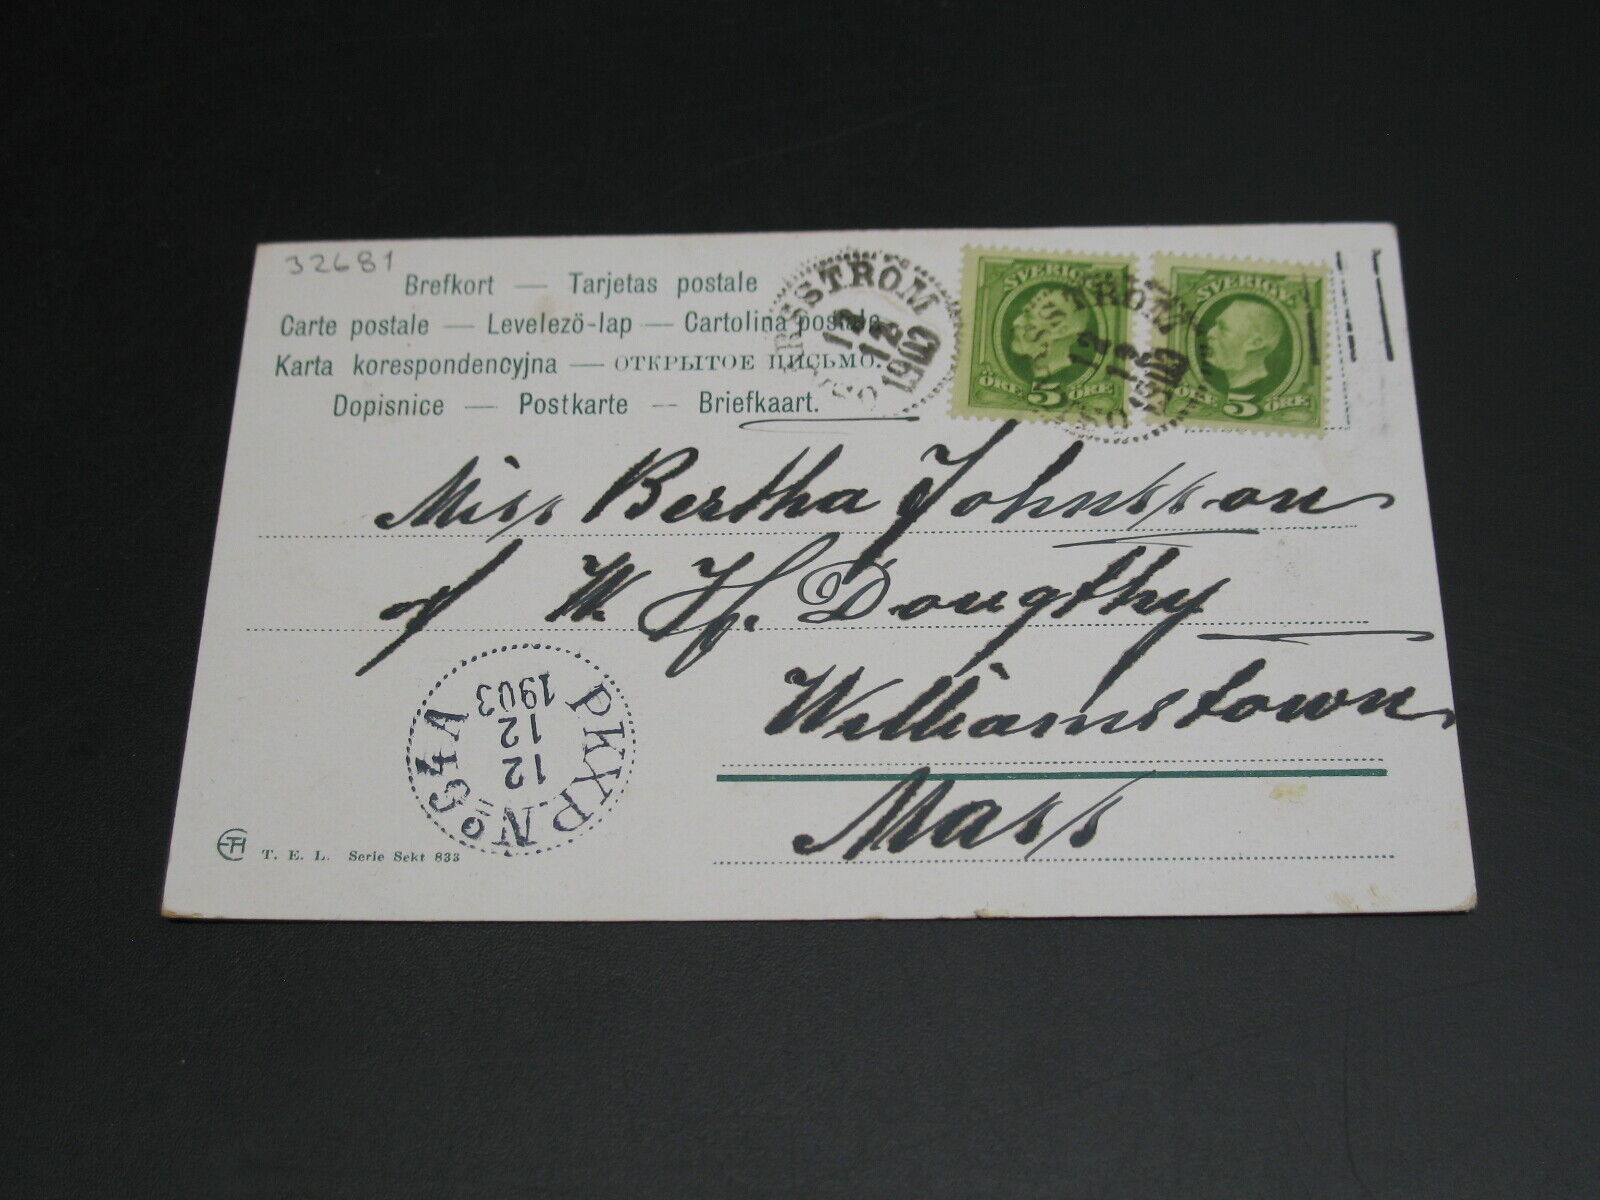 32681
Brefkort — Tarjetas postale
Carte postale — Levelezö-lap — Cartolina postale
Karta korespondencyjna — ОТКРЫТОЕ ПИСЬМО.
Dopisnice — Postkarte — Briefkaart.
STRÖM
12
12
1903
SVERIGE
ÖRE 5 ÖRE
12
12
1903
SVERIGE
ÖRE 5 ÖRE
Miss Bertha Johnsson
W. H. Dougthy
Williamstown
Mass
PKXP. Nº 64A
12
12
1903
T. E. L. Serie Sekt 833